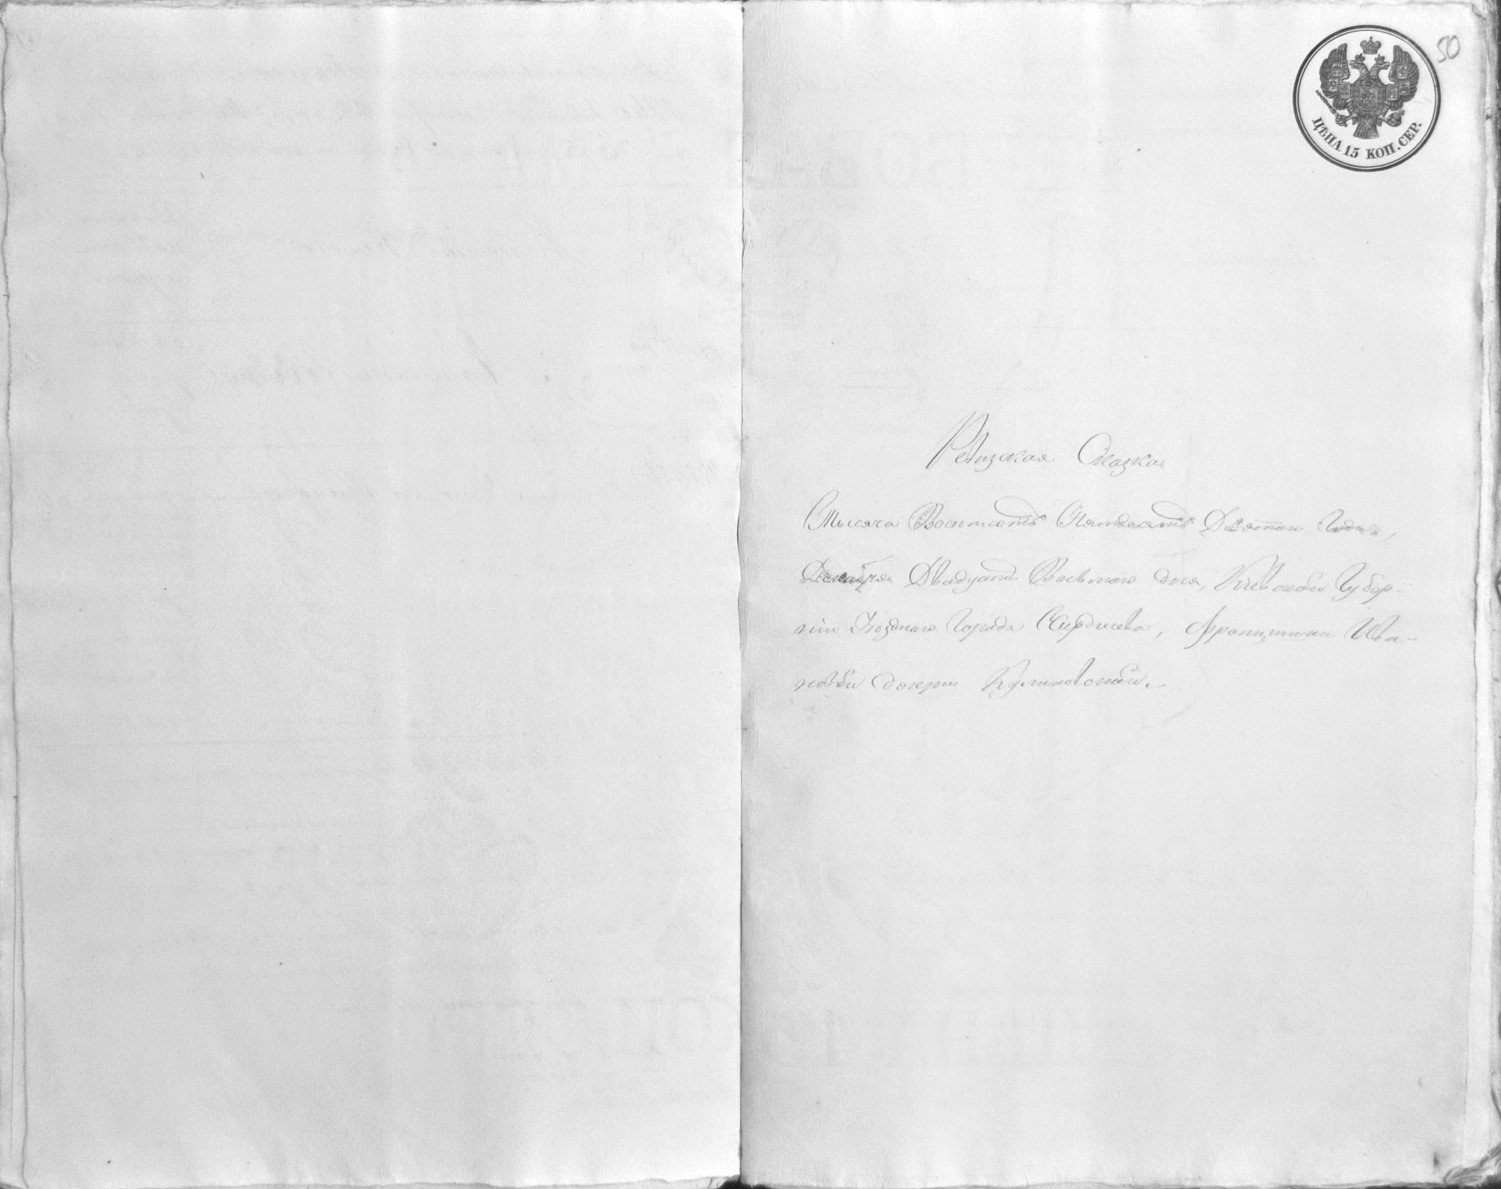 50
ЦѢНА 15 КОП. СЕР.
Ревизская Сказка
Тысяча Восемьсотъ Пятдесятъ Девятаго Года,
Декабря Двадцать Восьмаго дня, Кіевской Губер-
ніи Уезднаго Города Бердичева, Францишки Ива-
новой дочери Куликовской.